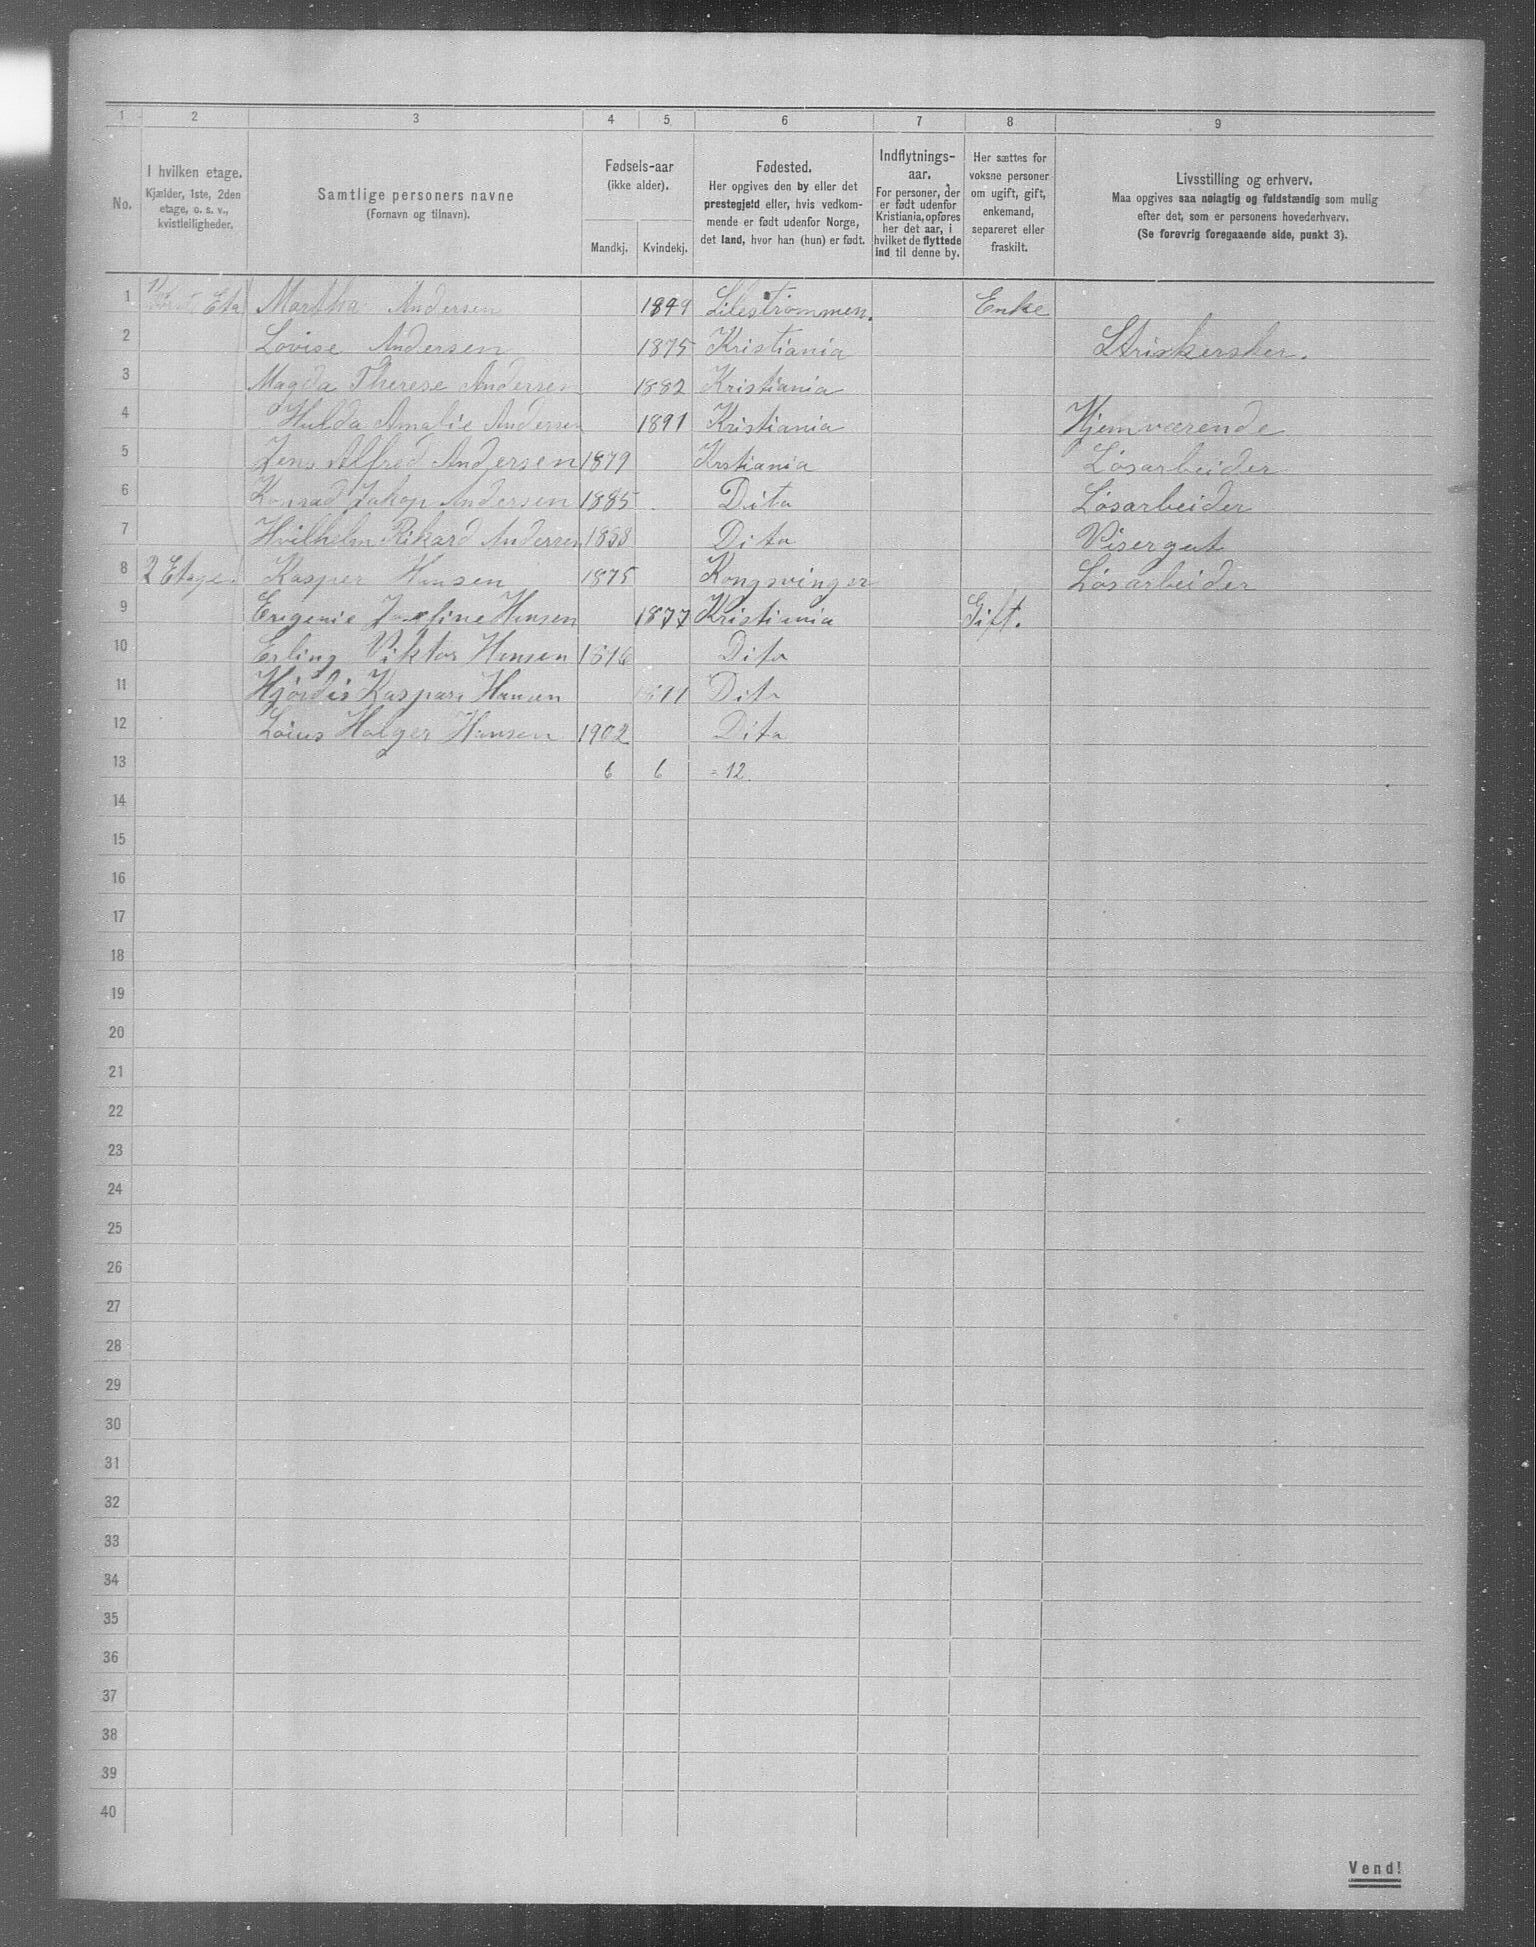 1 2 3 4 5 6 7 8 9
No.
I hvilken etage.
Kjælder, 1ste, 2den
etage, o. s. v.,
kvistleiligheder.
Samtlige personers navne
(Fornavn og tilnavn).
Fødsels-aar
(ikke alder).
Mandkj. Kvindekj.
Fødested.
Her opgives den by eller det
prestegjeld eller, hvis vedkom-
mende er født udenfor Norge,
det land, hvor han (hun) er født.
Indflytnings-
aar.
For personer, der
er født udenfor
Kristiania, opføres
her det aar, i
hvilket de flyttede
ind til denne by.
Her sættes for
voksne personer
om ugift, gift,
enkemand,
separeret eller
fraskilt.
Livsstilling og erhverv.
Maa opgives saa nøiagtig og fuldstændig som mulig
efter det, som er personens hovederhverv.
(Se forøvrig foregaaende side, punkt 3).
1 Eta Martha Andersen 1849 Lilestrømmen. Enke
2 Lovise Andersen 1875 Kristiania Striskersker.
3 Magda Therese Andersen 1882 Kristiania
4 Hulda Amalie Andersen 1891 Kristiania Hjemværende
5 Jens Alfred Andersen 1879 Krstiania Løsarbeider
6 Konrad Jakop Andersen 1885 Dita Løsarbeider
7 Hvilhelm Rikard Andersen 1888 Dita Visergut
8 2 Etage. Kasper Hansen 1875 Kongsvinger Løsarbeider
9 Eugenie Josefine Hansen 1877 Kristiania Gift.
10 Erling Viktor Hansen Dita
11 Hjørdis Kaspara Hansen Dita
12 Loius Holger Hansen 1902 Dita
13 6 6 = 12.
14
15
16
17
18
19
20
21
22
23
24
25
26
27
28
29
30
31
32
33
34
35
36
37
38
39
40
Vend!